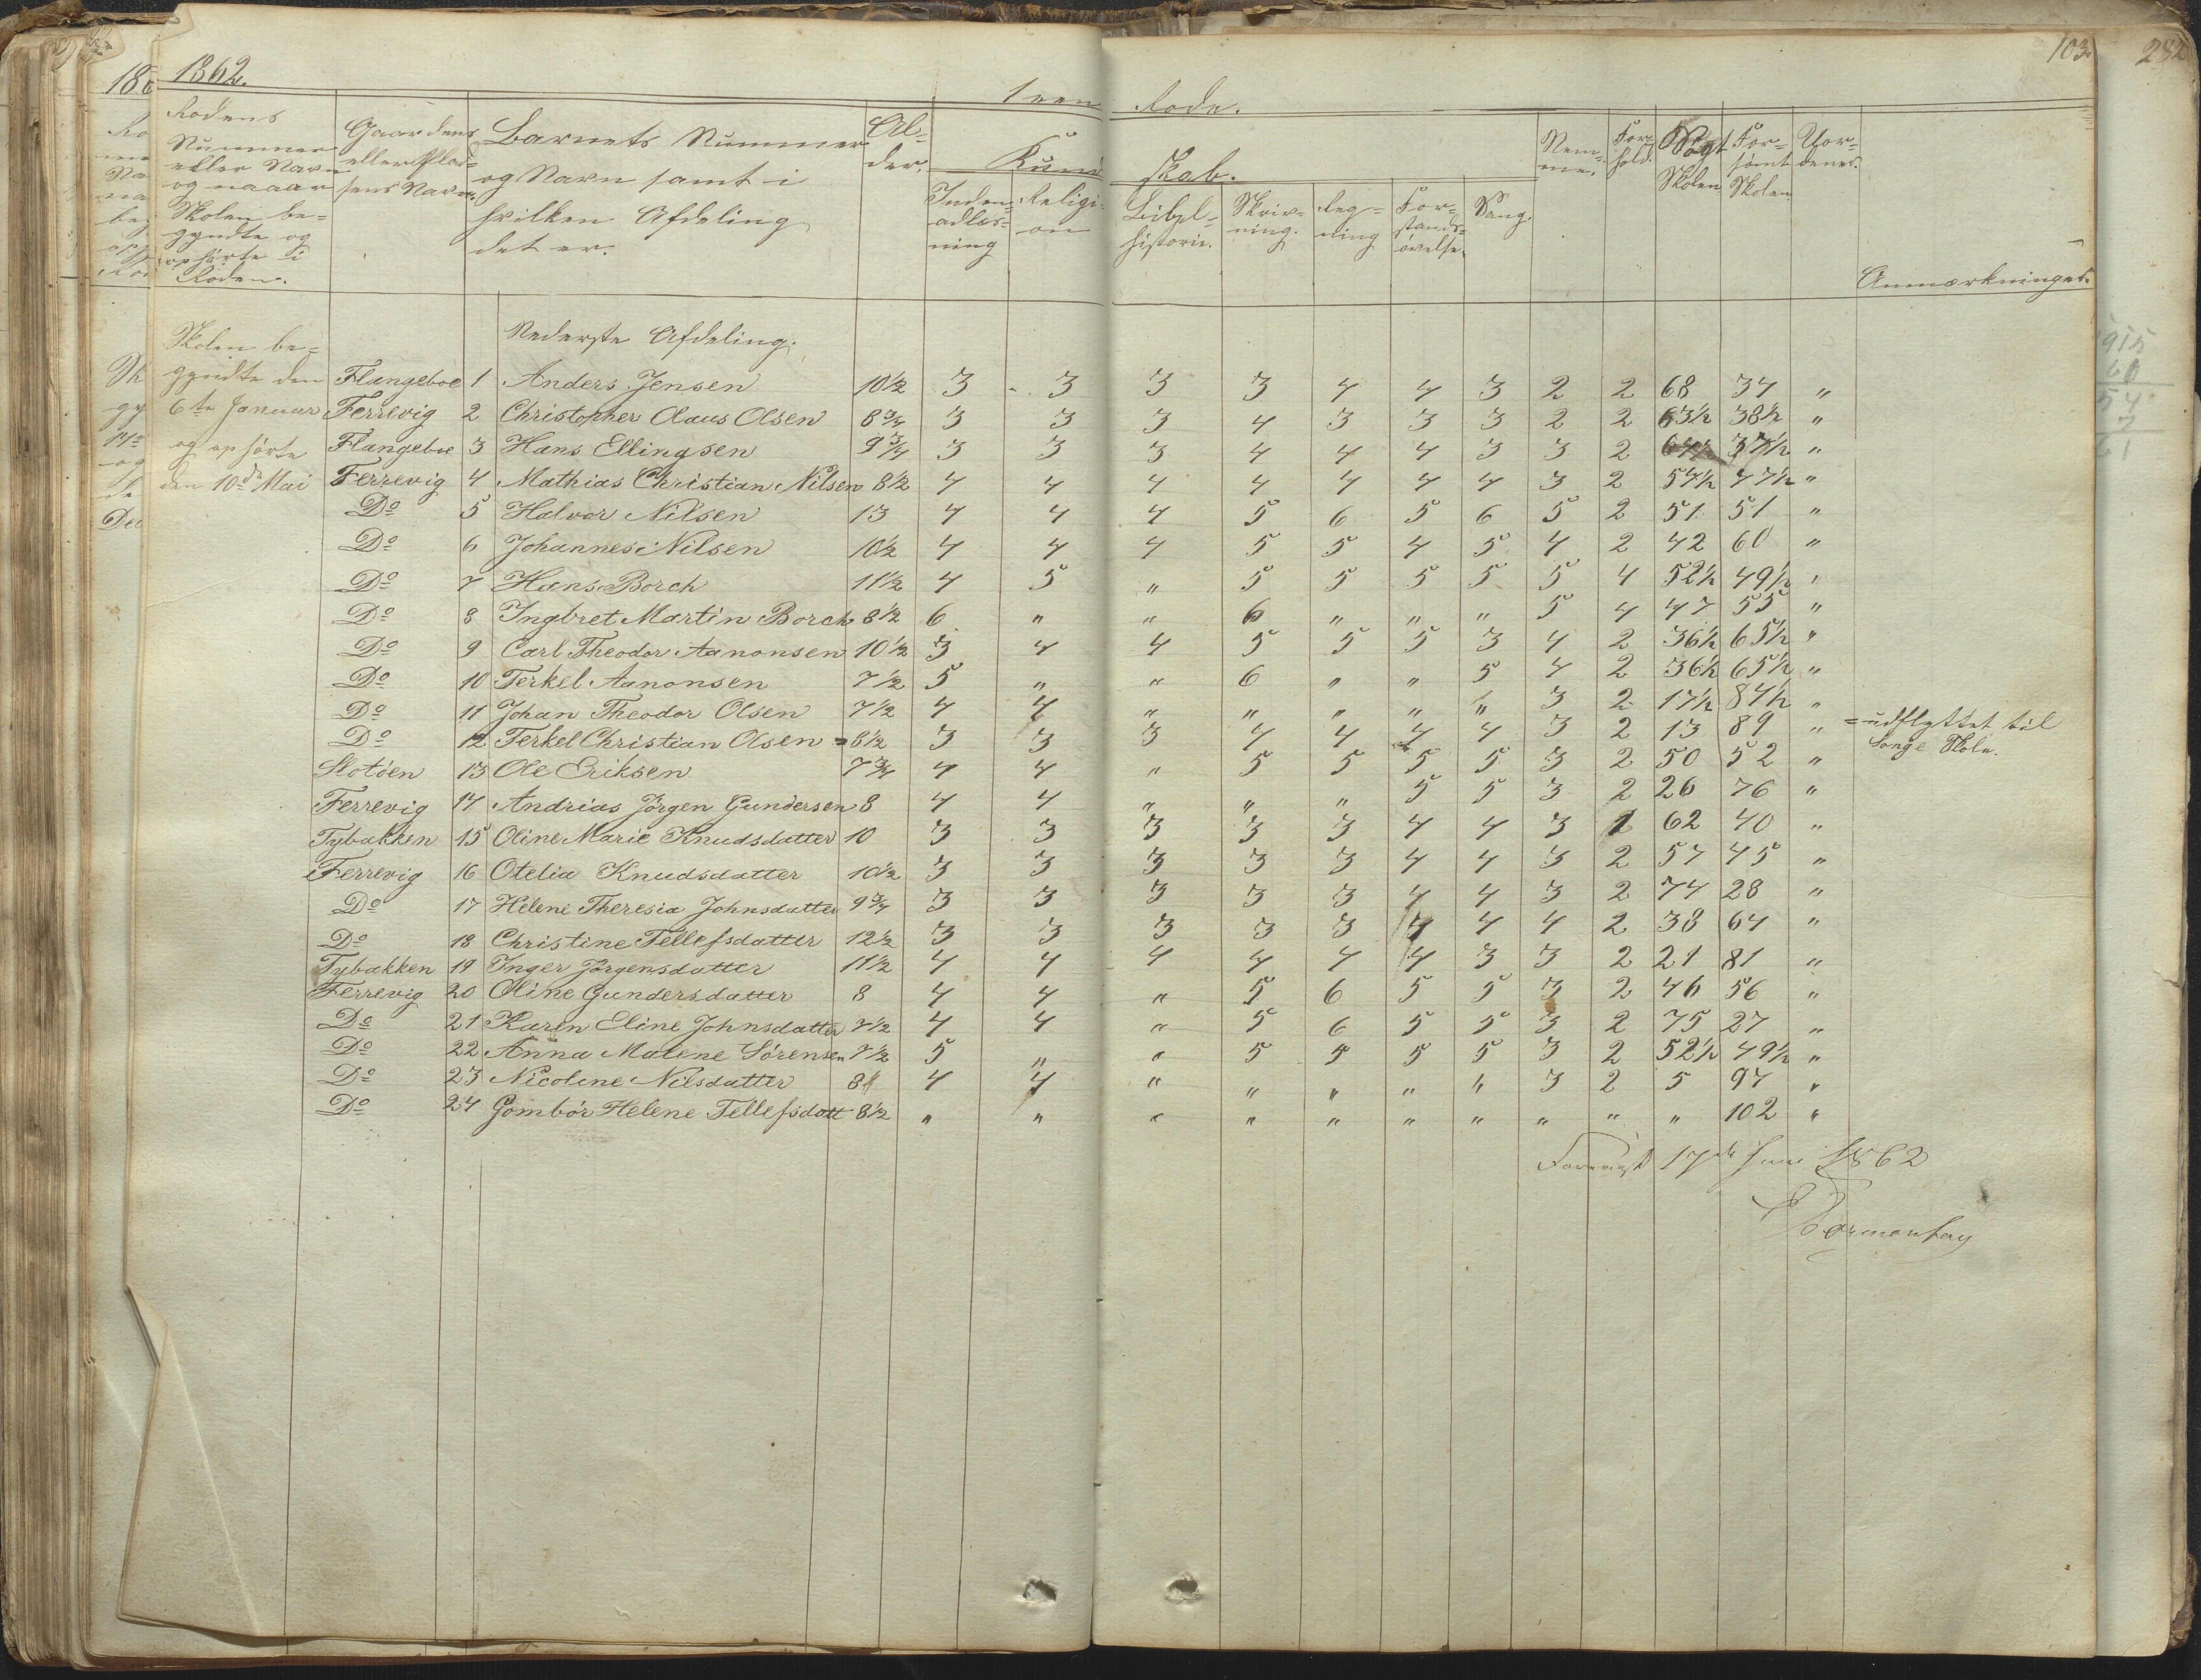 1862.
103.
282
1 een Rode.
Rodens Nummer eller Navn og naaar Skolen be= gyndte og ophørte i Roden.
Gaardens eller Plad= sens Navn.
Barnets Nummer og Navn samt i hvilken Afdeling det er.
Al= der.
Kund skab.
Inden= adlæs= ning
Religi= on
Bibel= historie.
Skriv= ning.
Reg= ning
For= stands= øvelse.
Sang.
Nem= me.
For= hold.
Søgt Skolen
For= sømt Skolen
Uor= dener.
Anmærkninger.
Nederste Afdeling.
Skolen be=
gyndte den Flangeboe 1 Anders Jensen 10½ 3 3 3 3 4 4 3 2 2 68 34 "
6te Januar Ferrevig 2 Christopher Olaus Olsen 8¾ 3 3 3 4 3 3 3 2 2 63½ 38½ "
og ophørte Flangeboe 3 Hans Ellingsen 9¾ 3 3 3 4 4 4 3 3 2 64½ 37½ "
den 10de Mai Ferrevig 4 Mathias Christian Nilsen 8½ 4 4 4 4 4 4 4 3 2 54½ 47½ "
Do 5 Halvor Nilsen 13 4 4 4 5 6 5 6 5 2 51 51 "
Do 6 Johannes Nilsen 10½ 4 4 4 5 5 4 5 4 2 42 60 "
Do 7 Hans Borch 11½ 4 5 " 5 5 5 5 5 4 52½ 49½ "
Do 8 Ingbret Martin Borch 8½ 6 " " 6 " " " 5 4 47 55 "
Do 9 Carl Theodor Aanonsen 10½ 3 4 4 5 5 5 3 4 2 36½ 65½ "
Do 10 Terkel Aanonsen 7½ 5 " " 6 " " 5 4 2 36½ 65½ "
Do 11 Johan Theodor Olsen 7½ 4 4 " " " " " 3 2 17½ 84½ "
Do 12 Terkel Christian Olsen = 8½ 3 3 3 4 4 4 4 3 2 13 89 " = udflyttet til
Songe Skole.
Slotöen 13 Ole Eriksen 7¾ 4 4 " 5 5 5 5 3 2 50 52 "
Ferrevig 14 Andrias Jörgen Gundersen 8 4 4 " " " 5 5 3 2 26 76 "
Tybakken 15 Oline Marie Knudsdatter 10 3 3 3 3 3 4 4 3 1 62 40 "
Ferrevig 16 Otelia Knudsdatter 10½ 3 3 3 3 3 4 4 3 2 57 45 "
Do 17 Helene Theresia Johnsdatter 9¾ 3 3 3 3 3 4 4 3 2 74 28 "
Do 18 Christine Tellefsdatter 12½ 3 3 3 3 3 4 4 4 2 38 64 "
Tybakken 19 Inger Jörgensdatter 11½ 4 4 4 4 4 4 3 3 2 21 81 "
Ferrevig 20 Oline Gundersdatter 8 4 4 " 5 6 5 5 3 2 46 56 "
Do 21 Karen Eline Johnsdatter 7½ 4 4 " 5 6 5 5 3 2 75 27 "
Do 22 Anna Malene Sörensen 7½ 5 " " 5 5 5 5 3 2 52½ 49½ "
Do 23 Nicoline Nilsdatter 8 4 4 " " " " " 3 2 5 97 "
Do 24 Gombör Helene Tellefsdatt 8½ " " " " " " " " " " 102 "
Foreviist 17de Juni 1862